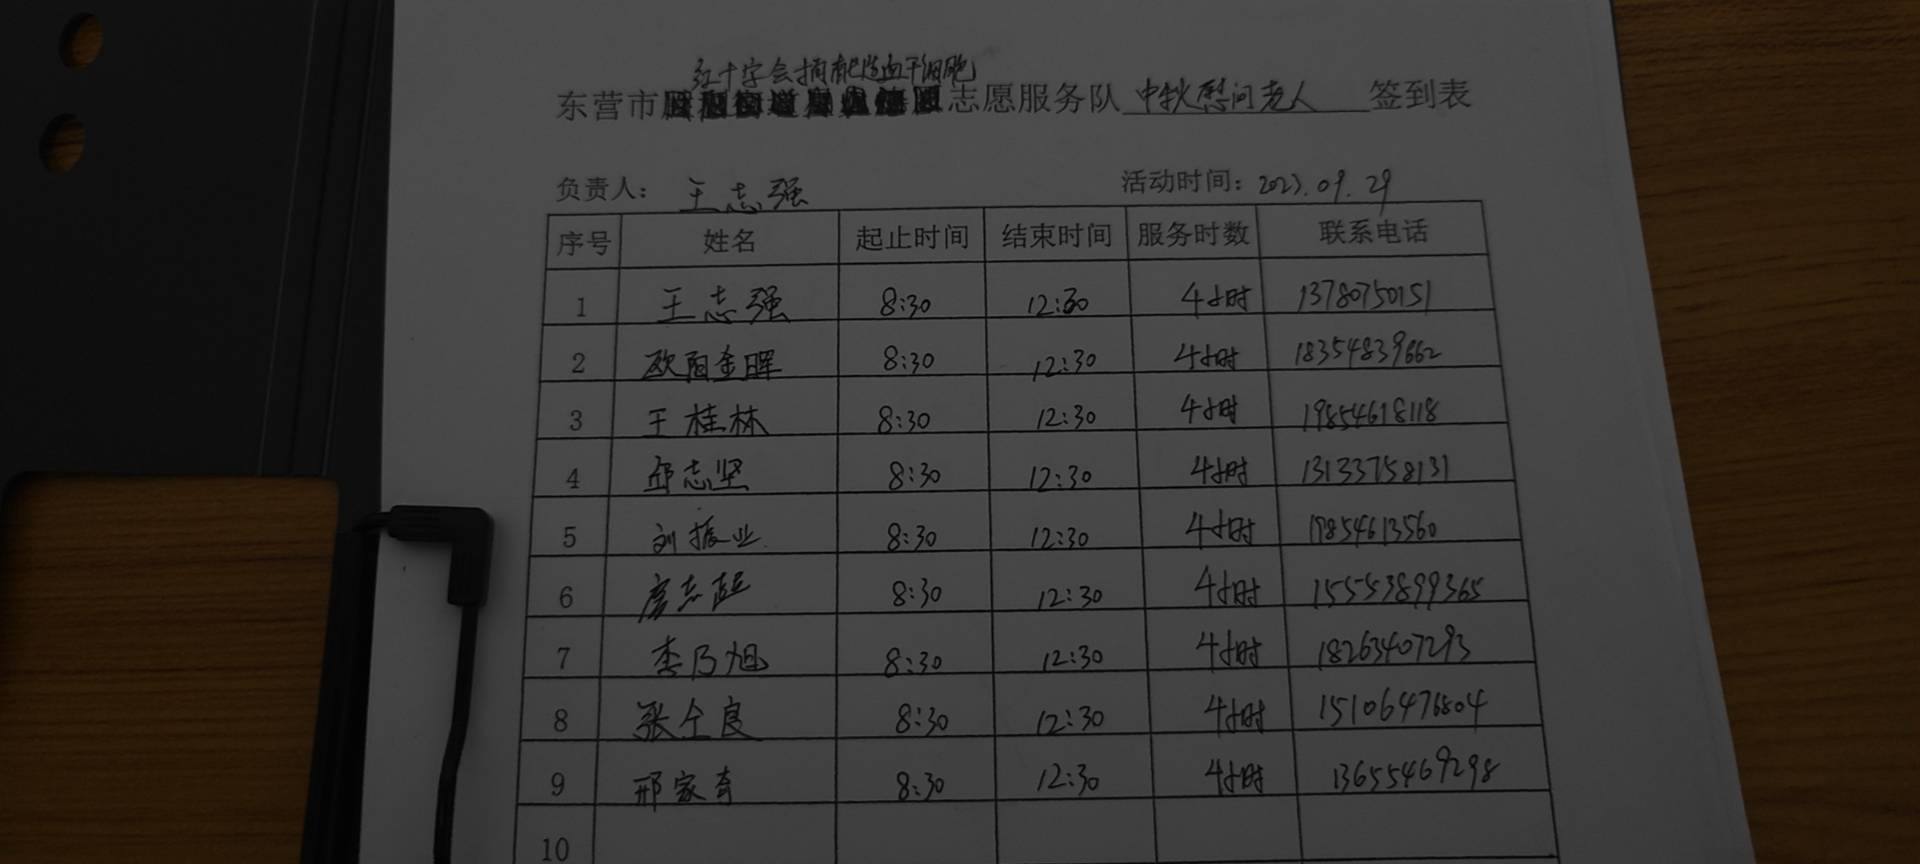 红十字会捐献造血干细胞
东营市志愿服务队 中秋慰问老人 签到表
负责人： 王志强 活动时间：2023.09.29
序号 姓名 起止时间 结束时间 服务时数 联系电话
1 王志强 8:30 12:30 4小时 13780750151
2 欧阳金晖 8:30 12:30 4小时 18354839662
3 王桂林 8:30 12:30 4小时 19854618118
4 邱志坚 8:30 12:30 4小时 13133758131
5 刘振业 8:30 12:30 4小时 19854613560
6 志超 8:30 12:30 4小时 15553899365
7 李乃旭 8:30 12:30 4小时 18263407293
8 张全良 8:30 12:30 4小时 15106476804
9 邢家奇 8:30 12:30 4小时 13655469298
10